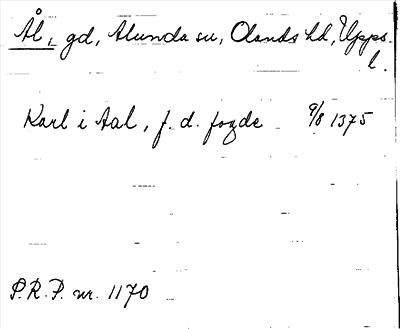 Ål, gd, Alunda sn, Olands hd, Upps.
l.
Karl i Aal, f. d. fogde 9/8 1375
P.R.P. nr. 1170